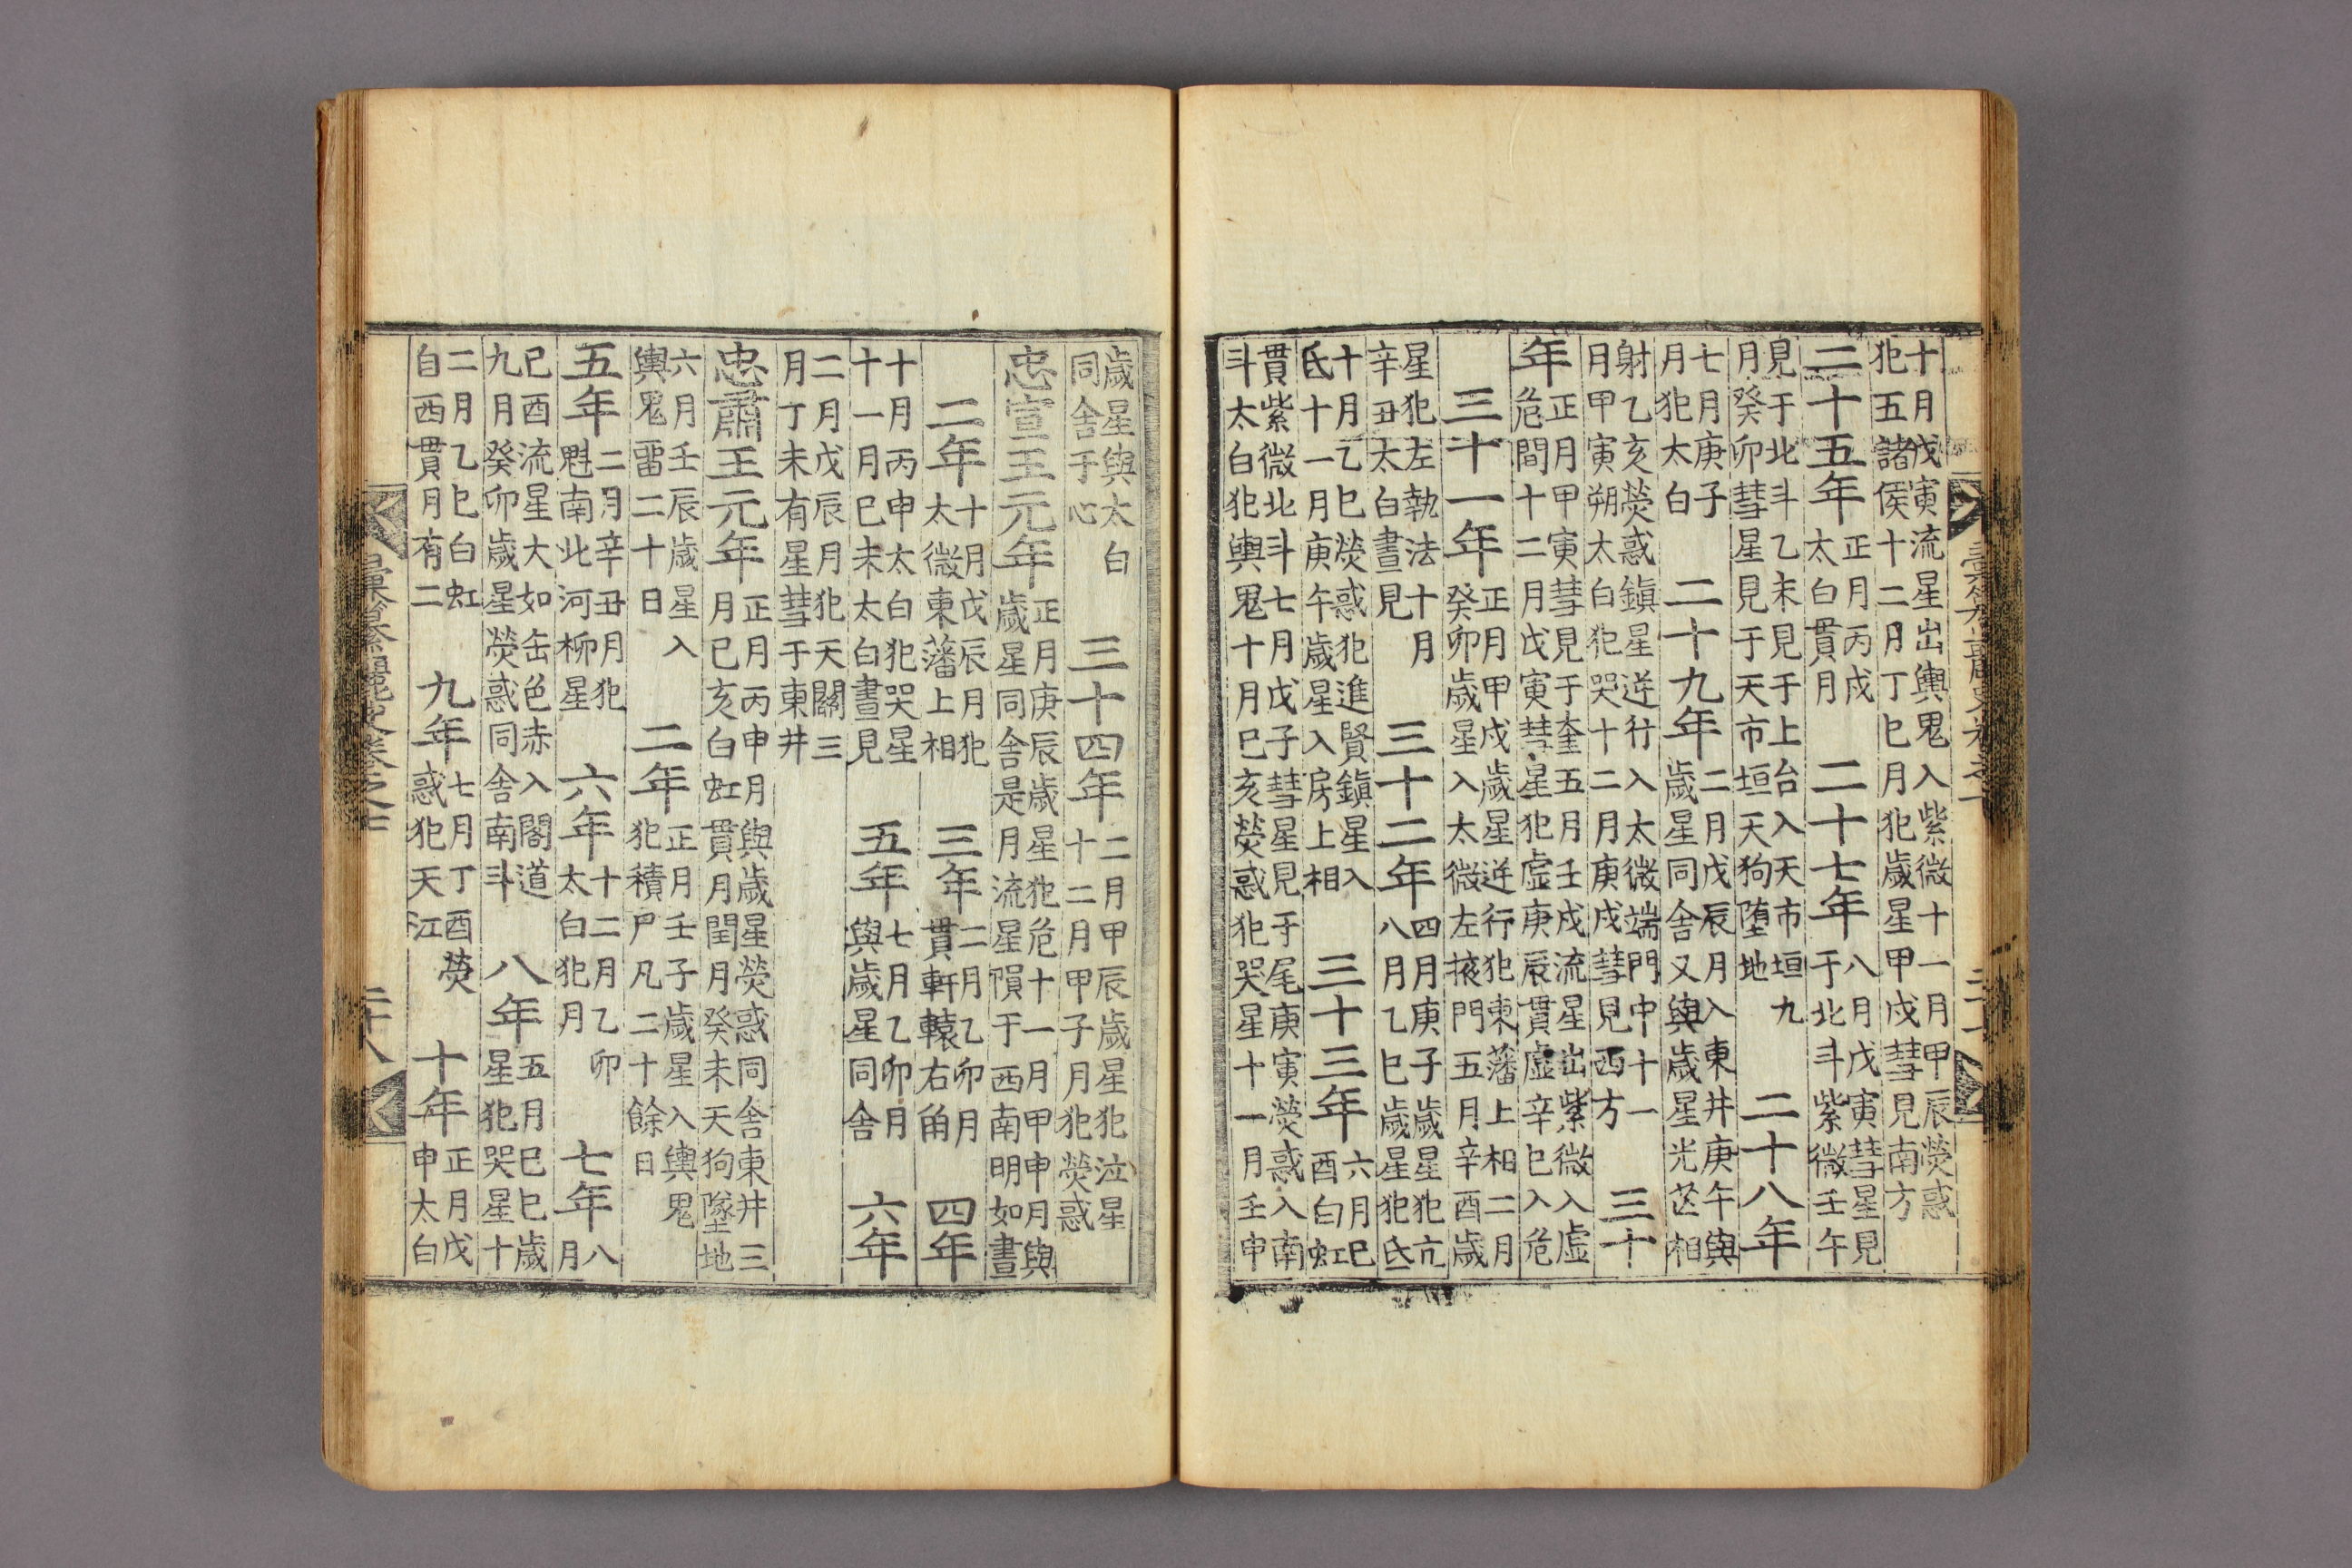 十月戊寅流星出輿鬼入紫微十一月甲辰熒惑
犯五諸侯十二月丁巳月犯歲星甲戌彗見南方
二十五年正月丙戌太白貫月二十七年八月戊寅彗星見于北斗紫微壬午
見于北斗乙未見于上台入天市垣九月癸卯彗星見于天市垣天狗墮地二十八年
七月庚子月犯太白二十九年二月戊辰月入東井庚午與歲星同舍又與歲星光芒相
射乙亥熒惑鎮星逆行入太微端門中十一月甲寅朔太白犯哭十二月庚戌彗見西方三十
年正月甲寅彗見于奎五月壬戌流星出紫微入虛危間十二月戊寅彗星犯虛庚辰貫虛辛巳入危
三十一年正月甲戌歲星逆行犯東藩上相二月癸卯歲星入太微左掖門五月辛酉歲
星犯左執法十月辛丑太白晝見三十二年四月庚子歲星犯亢八月乙巳歲星犯氐
十月乙巳熒惑犯進賢鎮星入氐十一月庚午歲星入房上相三十三年六月巳酉白虹
貫紫微北斗七月戊子彗星見于尾庚寅熒惑入南
斗太白犯輿鬼十月巳亥熒惑犯哭星十一月壬申
歲星與太白同舍于心三十四年二月甲辰歲星犯泣星十二月甲子月犯熒惑
忠宣王元年正月庚辰歲星犯危十一月甲申月與歲星同舍是月流星隕于西南明如晝
二年十月戊辰月犯太微東藩上相三年二月乙卯月貫軒轅右角四年
十月丙申太白犯哭星十一月巳未太白晝見五年七月乙卯月與歲星同舍六年
二月戊辰月犯天關三月丁未有星彗于東井
忠肅王元年正月丙申月與歲星熒惑同舍東井三月巳亥白虹貫月閏月癸未天狗墜地
六月壬辰歲星入輿鬼留二十日二年正月壬子歲星入輿鬼犯積尸凡二十餘日
五年二月辛丑月犯魁南北河柳星六年十二月乙卯太白犯月七年八月
巳酉流星大如缶色赤入閣道九月癸卯歲星熒惑同舍南斗八年五月巳巳歲星犯哭星十
二月乙巳白虹自西貫月有二九年七月丁酉熒惑犯天江十年正月戊申太白